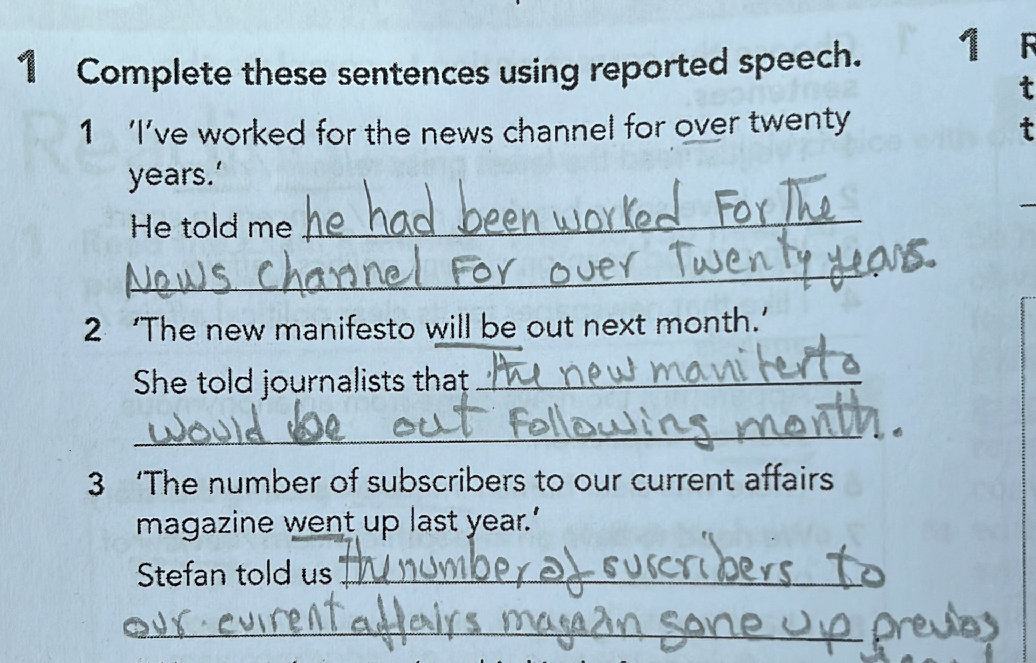 1 Complete these sentences using reported speech.
1 'I've worked for the news channel for over twenty
years.'
He told me he had been worked For The
News Channel For over Twenty years.
2 'The new manifesto will be out next month.'
She told journalists that the new maniferto
would be out Following month.
3 'The number of subscribers to our current affairs
magazine went up last year.'
Stefan told us the number of suscribers to
our current affairs magazin gone up previos
1 R
t
t